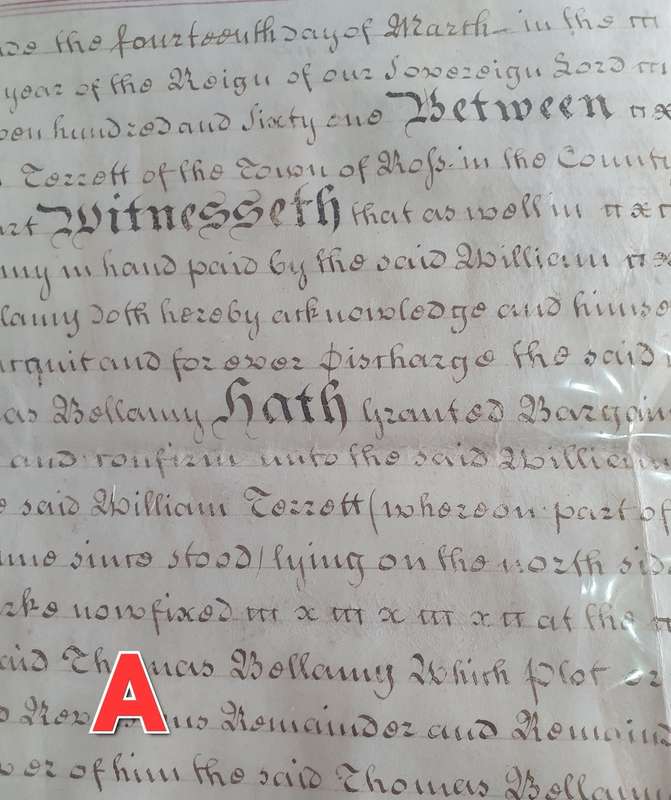 the fourteenth day of March in the
year of the Reign of our Sovereign Lord
hundred and Sixty one Between
Terrett of the Town of Ross in the
Witnesseth that as well in
in hand paid by the said William
doth hereby acknowledge and
and for ever Discharge the said
as Bellamy Hath Granted
and confirm unto the said William
said William Terrett (whereon part of
since stood) lying on the north
now fixed at the
A
Bellamy Which plot
Remainder and
of him the said Thomas